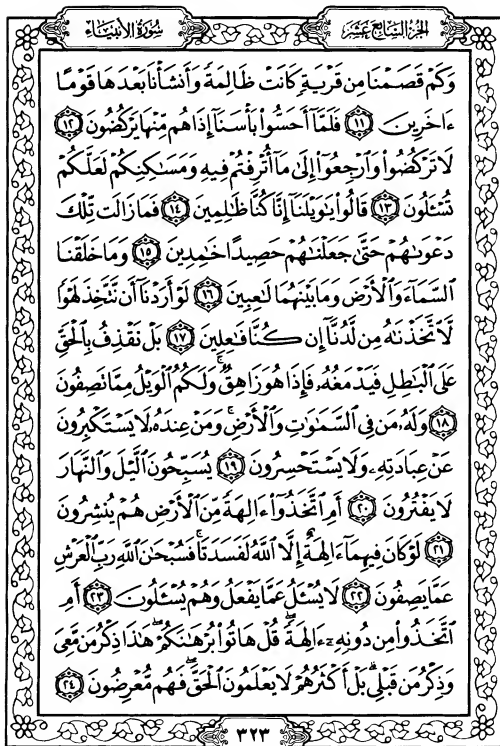 الجزء السابع عشر
سورة الأنبياء
وَكَمْ قَصَمْنَا مِن قَرْيَةٍ كَانَتْ ظَالِمَةً وَأَنشَأْنَا بَعْدَهَا قَوْمًا
ءَاخَرِينَ ١١ فَلَمَّآ أَحَسُّوا۟ بَأْسَنَآ إِذَا هُم مِّنْهَا يَرْكُضُونَ ١٢
لَا تَرْكُضُوا۟ وَٱرْجِعُوٓا۟ إِلَىٰ مَآ أُتْرِفْتُمْ فِيهِ وَمَسَٰكِنِكُمْ لَعَلَّكُمْ
تُسْـَٔلُونَ ١٣ قَالُوا۟ يَٰوَيْلَنَآ إِنَّا كُنَّا ظَٰلِمِينَ ١٤ فَمَا زَالَت تِّلْكَ
دَعْوَىٰهُمْ حَتَّىٰ جَعَلْنَٰهُمْ حَصِيدًا خَٰمِدِينَ ١٥ وَمَا خَلَقْنَا
ٱلسَّمَآءَ وَٱلْأَرْضَ وَمَا بَيْنَهُمَا لَٰعِبِينَ ١٦ لَوْ أَرَدْنَآ أَن نَّتَّخِذَ لَهْوًا
لَّٱتَّخَذْنَٰهُ مِن لَّدُنَّآ إِن كُنَّا فَٰعِلِينَ ١٧ بَلْ نَقْذِفُ بِٱلْحَقِّ
عَلَى ٱلْبَٰطِلِ فَيَدْمَغُهُۥ فَإِذَا هُوَ زَاهِقٌ ۚ وَلَكُمُ ٱلْوَيْلُ مِمَّا تَصِفُونَ
١٨ وَلَهُۥ مَن فِى ٱلسَّمَٰوَٰتِ وَٱلْأَرْضِ ۚ وَمَنْ عِندَهُۥ لَا يَسْتَكْبِرُونَ
عَنْ عِبَادَتِهِۦ وَلَا يَسْتَحْسِرُونَ ١٩ يُسَبِّحُونَ ٱلَّيْلَ وَٱلنَّهَارَ
لَا يَفْتُرُونَ ٢٠ أَمِ ٱتَّخَذُوٓا۟ ءَالِهَةً مِّنَ ٱلْأَرْضِ هُمْ يُنشِرُونَ
٢١ لَوْ كَانَ فِيهِمَآ ءَالِهَةٌ إِلَّا ٱللَّهُ لَفَسَدَتَا ۚ فَسُبْحَٰنَ ٱللَّهِ رَبِّ ٱلْعَرْشِ
عَمَّا يَصِفُونَ ٢٢ لَا يُسْـَٔلُ عَمَّا يَفْعَلُ وَهُمْ يُسْـَٔلُونَ ٢٣ أَمِ
ٱتَّخَذُوا۟ مِن دُونِهِۦٓ ءَالِهَةً ۖ قُلْ هَاتُوا۟ بُرْهَٰنَكُمْ ۖ هَٰذَا ذِكْرُ مَن مَّعِىَ
وَذِكْرُ مَن قَبْلِى ۗ بَلْ أَكْثَرُهُمْ لَا يَعْلَمُونَ ٱلْحَقَّ ۖ فَهُم مُّعْرِضُونَ ٢٤
٣٢٣